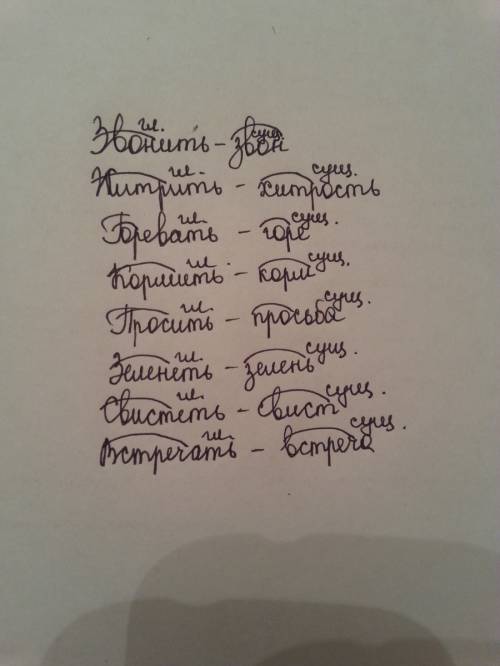 Звонить гл. - звон сущ.
Хитрить гл. - хитрость сущ.
Горевать гл. - горе сущ.
Кормить гл. - корм сущ.
Просить гл. - просьба сущ.
Зеленеть гл. - зелень сущ.
Свистеть гл. - свист сущ.
Встречать гл. - встреча сущ.